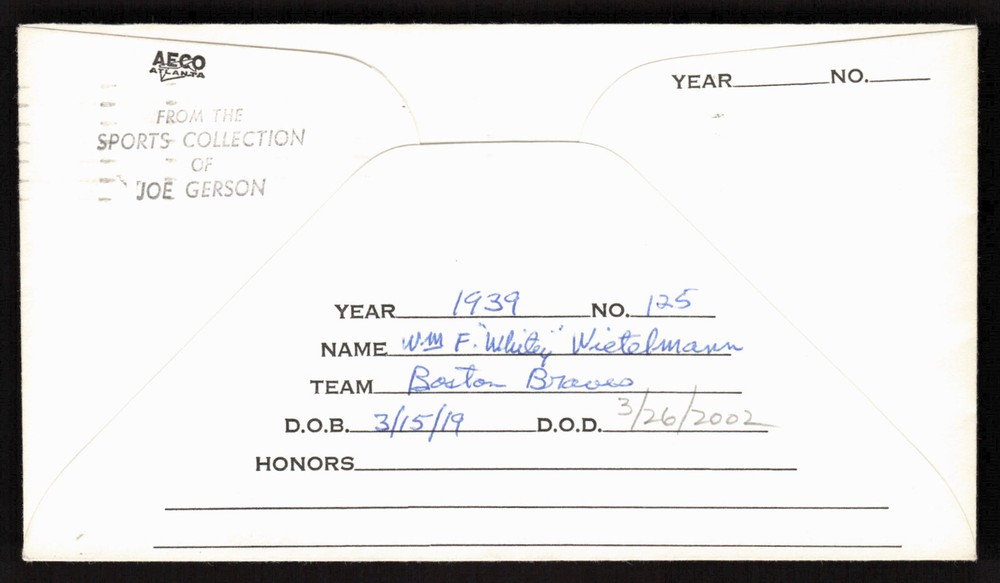 AECO
ATLANTA
FROM THE
SPORTS COLLECTION
OF
JOE GERSON
YEAR NO.
YEAR 1939 NO. 125
NAME Wm F. "Whitey" Wietelmann
TEAM Boston Braves
D.O.B. 3/15/19 D.O.D. 3/26/2002
HONORS